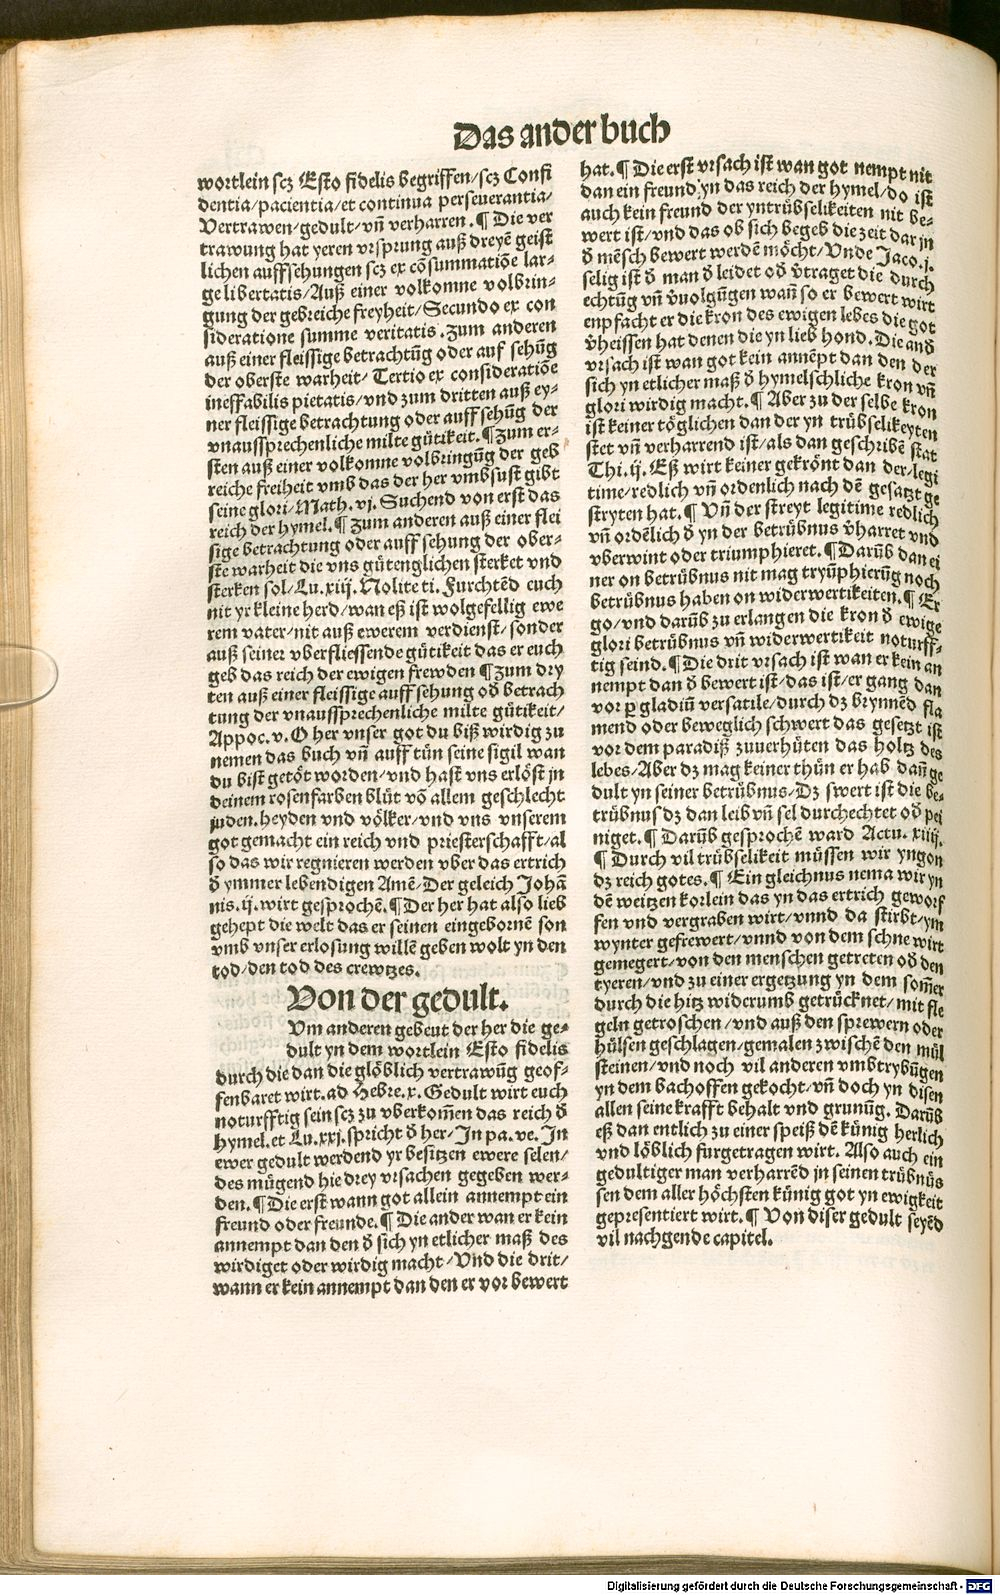 Das ander buch
wortlein scz Esto fidelis begriffen/scz Confi
dentia/pacientia/et continua perseuerantia/
Vertrawen/gedult/vñ verharren.¶ Die ver
trawung hat yeren vrsprung auß dreyẽ geist
lichen auffsehungen scz ex cõsummatiõe lar⸗
ge libertatis/Auß einer volkomne volbrin⸗
gung der gebreiche freyheit/Secundo ex con
sideratione summe veritatis.zum anderen
auß einer fleissige betrachtũg oder auf sehũg
der oberste warheit/Tertio ex consideratiõe
ineffabilis pietatis/vnd zum dritten auß ey⸗
ner fleissige betrachtung oder auffsehũg der
vnaussprechenliche milte gütikeit.¶zum er⸗
sten auß einer volkomne volbringũg der geb
reiche freiheit vmb das der her vmbsust gibt
seine glori/Math.vj.Suchend von erst das
reich der hymel.¶ zum anderen auß einer flei
sige betrachtung oder auff sehung der ober⸗
ste warheit die vns gütenglichen sterket vnd
sterken sol/Lu.xiij.Nolite ti.Furchtẽd euch
nit yr kleine herd/wan eß ist wolgefellig ewe
rem vater/nit auß ewerem verdienst/sonder
auß seiner vberfliessende gütikeit das er euch
geb das reich der ewigen frewden ¶ zum dry
ten auß einer fleissige auff sehung oð betrach
tung der vnaussprechenliche milte gütikeit/
Appoc.v.O her vnser got du biß wirdig zu
nemen das buch vñ auff tün seine sigil wan
du bist getöt worden/vnd hast vns erlöst jn
deinem rosenfarben blüt võ allem geschlecht
juden.heyden vnd völker/vnd vns vnserem
got gemacht ein reich vnd priesterschafft/al
so das wir regnieren werden vber das ertrich
ð ymmer lebendigen Amẽ/Der geleich Johã
nis.ij.wirt gesprochẽ.¶Der her hat also lieb
gehept die welt das er seinen eingebornẽ son
vmb vnser erlosung willẽ geben wolt yn den
tod/den tod des crewtzes.
Von der gedult.
Vm anderen gebeut der her die ge⸗
dult yn dem wortlein Esto fidelis
durch die dan die glöblich vertrawũg geof⸗
fenbaret wirt.ad Hebre.x.Gedult wirt euch
noturfftig sein scz zu vberkom̃en das reich ð
hymel.et Lu.xxj.spricht ð her/In pa.ve.In
ewer gedult werdend yr besitzen ewere selen/
des mügend hie drey vrsachen gegeben wer⸗
den.¶ Die erst wann got allein annempt ein
freund oder freunde.¶ Die ander wan er kein
annempt dan den ð sich yn etlicher maß des
wirdiget oder wirdig macht/Vnd die drit/
wann er kein annempt dan den er vor bewert
hat.¶ Die erst vrsach ist wan got nempt nit
dan ein freund yn das reich der hymel/do ist
auch kein freund der yntrübselikeiten nit be⸗
wert ist/vnd das ob sich begeb die zeit dar jn
ð mẽsch bewert werdẽ möcht/Vnde Jaco.j.
selig ist ð man ð leidet oð v̈traget die durch
echtũg vñ v̈uolgũgen wañ so er bewert wirt
enpfacht er die kron des ewigen lebes die got
v̈heissen hat denen die yn lieb hond.Die anð
vrsach ist wan got kein annẽpt dan den der
sich yn etlicher maß ð hymelschliche kron vñ
glori wirdig macht.¶ Aber zu der selbe kron
ist keiner töglichen dan der yn trübselikeyten
stet vñ verharrend ist/als dan geschribẽ stat
Thi.ij.Eß wirt keiner gekrönt dan der/legi
time/redlich vñ ordenlich nach dẽ gesatzt ge
stryten hat.¶ Vñ der streyt legitime redlich
vñ ordẽlich ð yn der betrübnus v̈harret vnd
vberwint oder triumphieret.¶ Darũb dan ei
ner on betrübnus nit mag tryũphierũg noch
betrübnus haben on widerwertikeiten.¶ Er
go/vnd darũb zu erlangen die kron ð ewige
glori betrübnus vñ widerwertikeit noturff⸗
tig seind.¶ Die drit vrsach ist wan er kein an
nempt dan ð bewert ist/das ist/er gang dan
vor ꝑ gladiũ versatile/durch dz brynnẽd fla
mend oder beweglich schwert das gesetzt ist
vor dem paradiß zuuerhüten das holtz des
lebes/Aber dz mag keiner thün er hab dañ ge
dult yn seiner betrübnus/Dz swert ist die be⸗
trübnus dz dan leib vñ sel durchechtet oð pei
niget.¶ Darũb gesprochẽ ward Actu.xiiij.
¶ Durch vil trübselikeit müssen wir yngon
dz reich gotes.¶ Ein gleichnus nema wir yn
dẽ weitzen korlein das yn das ertrich geworf
fen vnd vergraben wirt/vnnd da stirbt/ym
wynter gefrewert/vnnd von dem schne wirt
gemegert/von den menschen getreten oð den
tyeren/vnd zu einer ergetzung yn dem som̃er
durch die hitz widerumb getrücknet/mit fle
geln getroschen/vnd auß den sprewern oder
hülsen geschlagen/gemalen zwischẽ den mül
steinen/vnd noch vil anderen vmbtrybũgen
yn dem bachoffen gekocht/vñ doch yn disen
allen seine krafft behalt vnd grunũg.Darũb
eß dan entlich zu einer speiß dẽ künig herlich
vnd löblich furgetragen wirt.Also auch ein
gedultiger man verharrẽd jn seinen trübnüs
sen dem aller höchsten künig got yn ewigkeit
gepresentiert wirt.¶ Von diser gedult seyẽd
vil nachgende capitel.
Digitalisierung gefördert durch die Deutsche Forschungsgemeinschaft - DFG